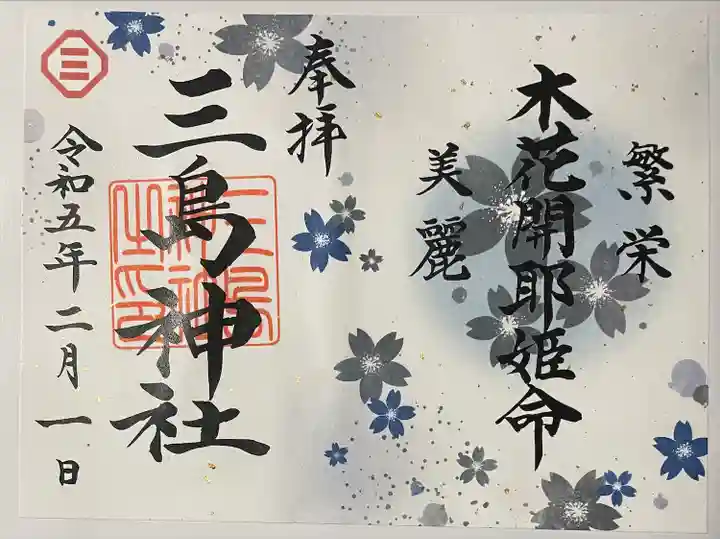 繁栄
木花開耶姫命
美麗
奉拝
三島神社
三
三島神社之印
令和五年二月一日